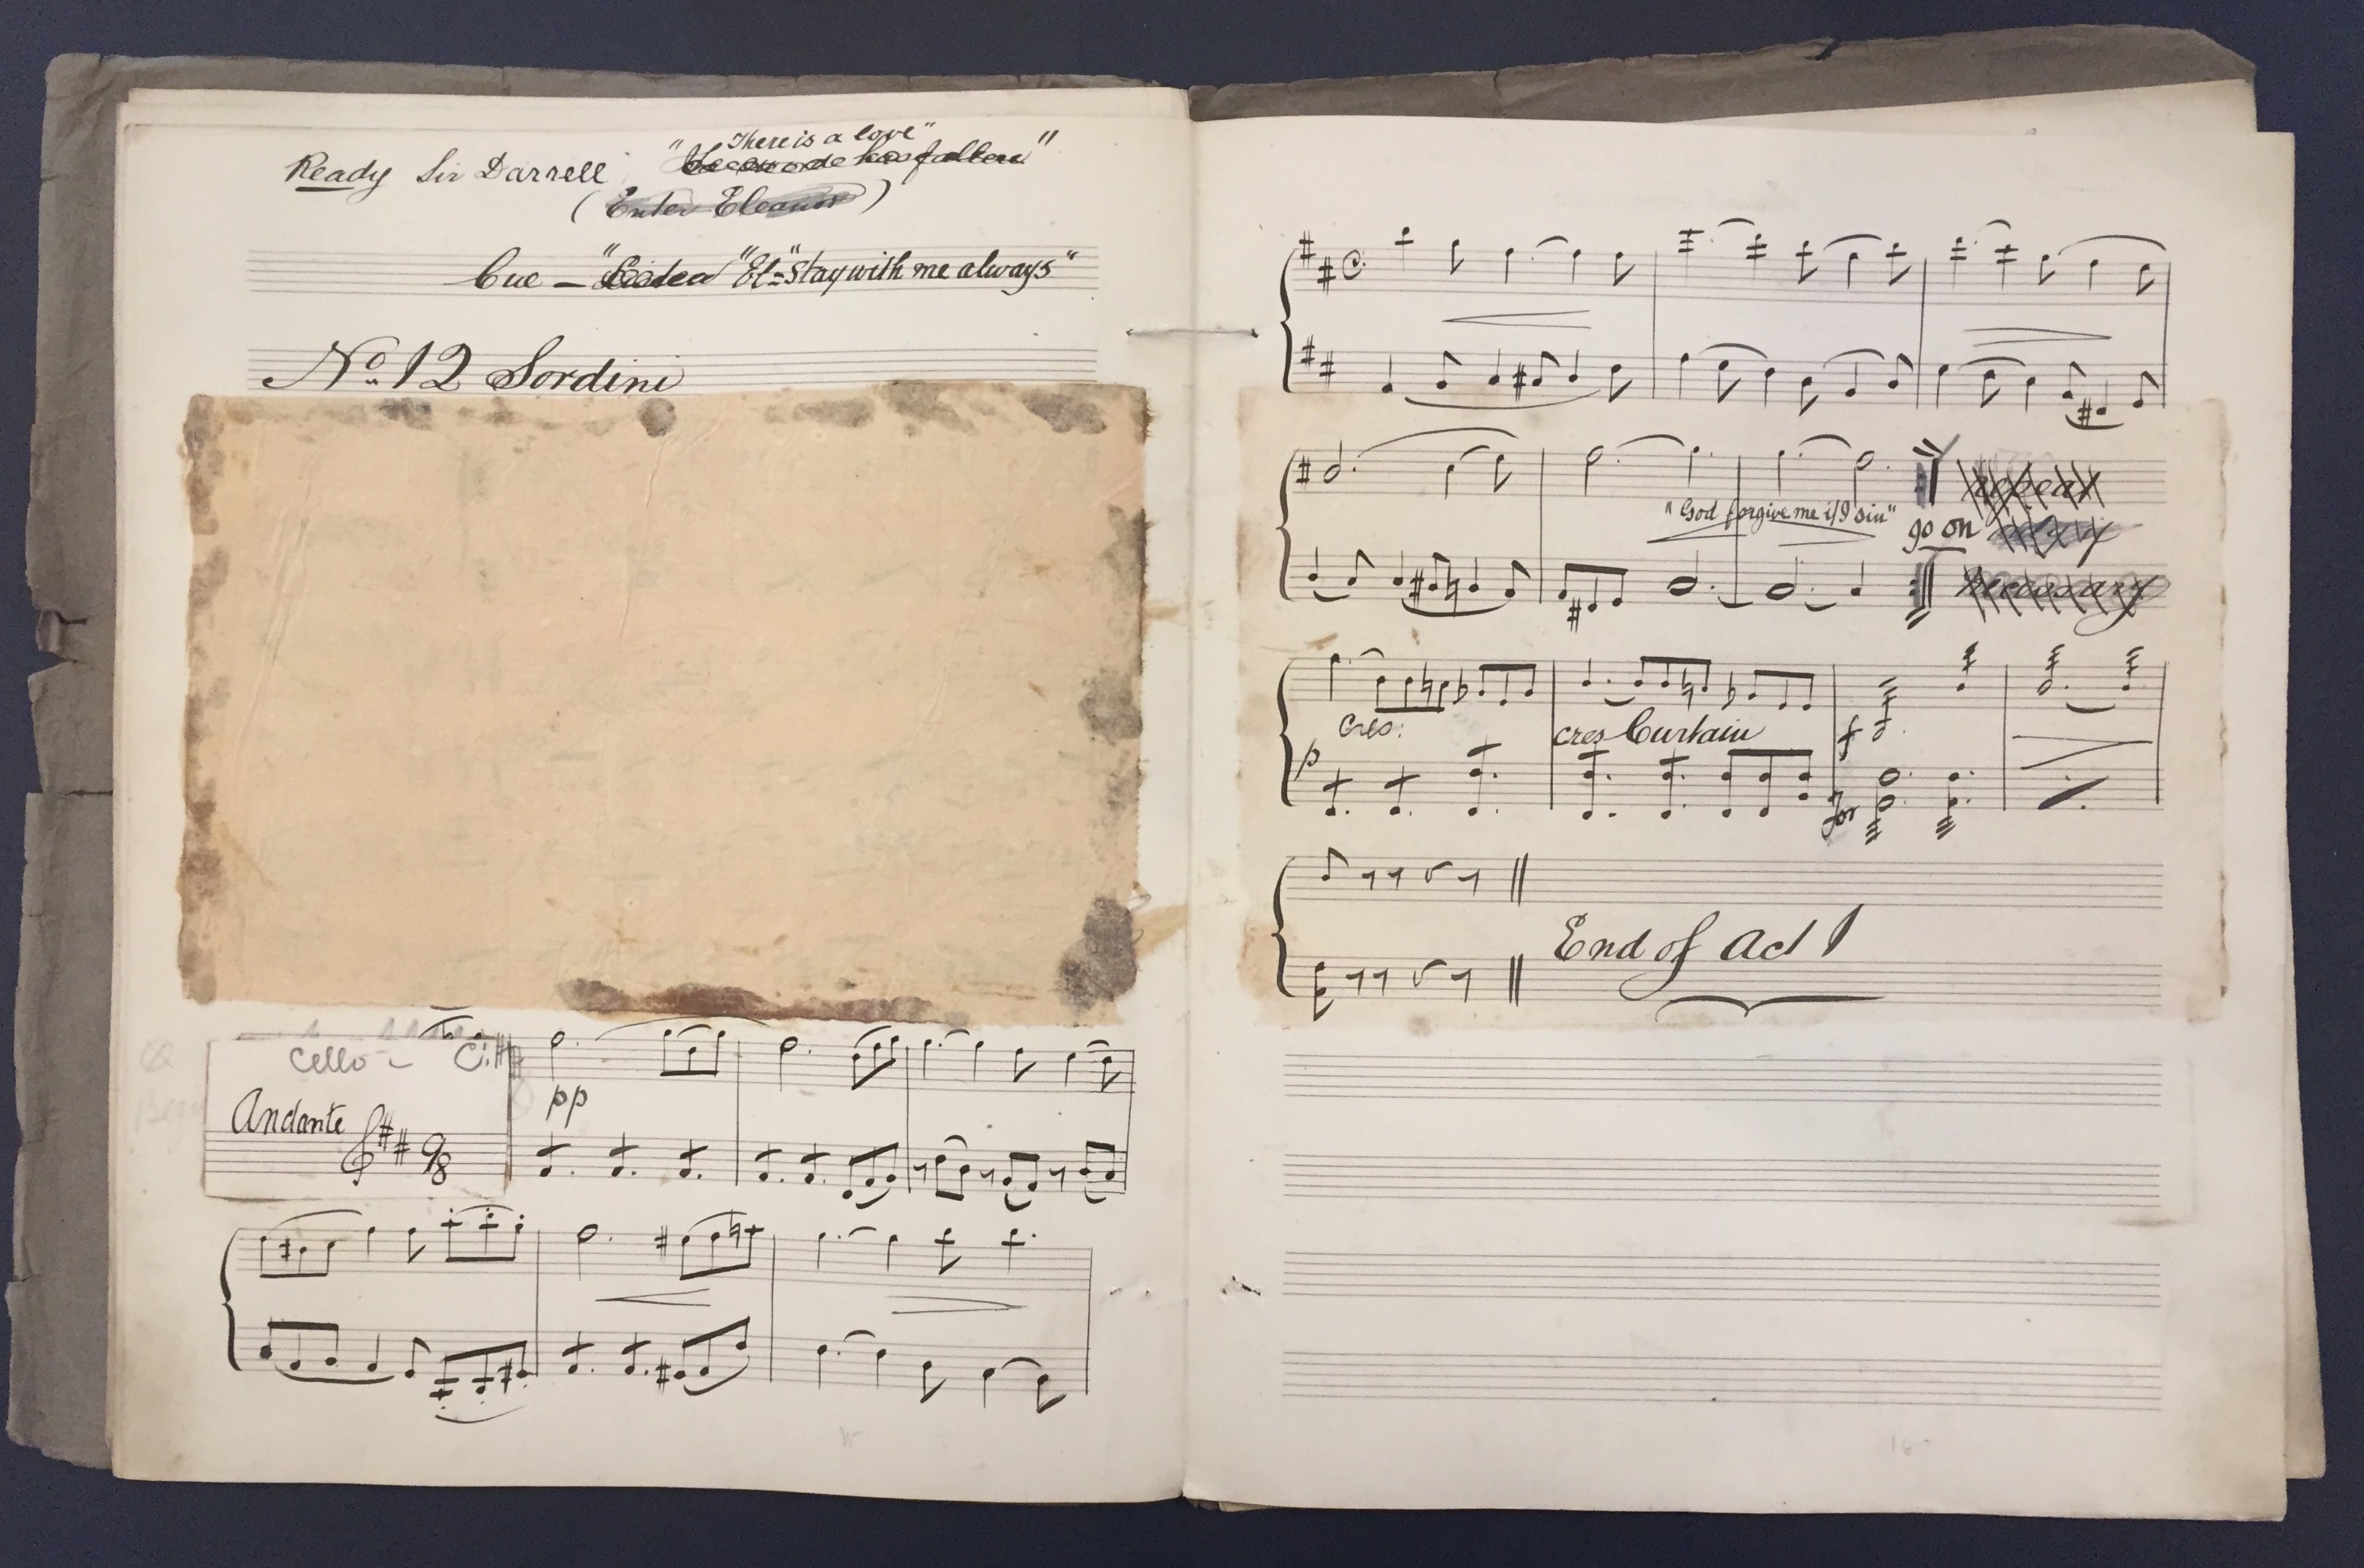 "There is a love"
Ready Sir Darrell
(Enter Eleanor)
Cue — "El = "Stay with me always"
No. 12 Sordini
Cello -
Andante
9/8
pp
"God forgive me if I sin"
repeat
go on
necessary
cres:
cres Curtain
p
f
End of Act I
16